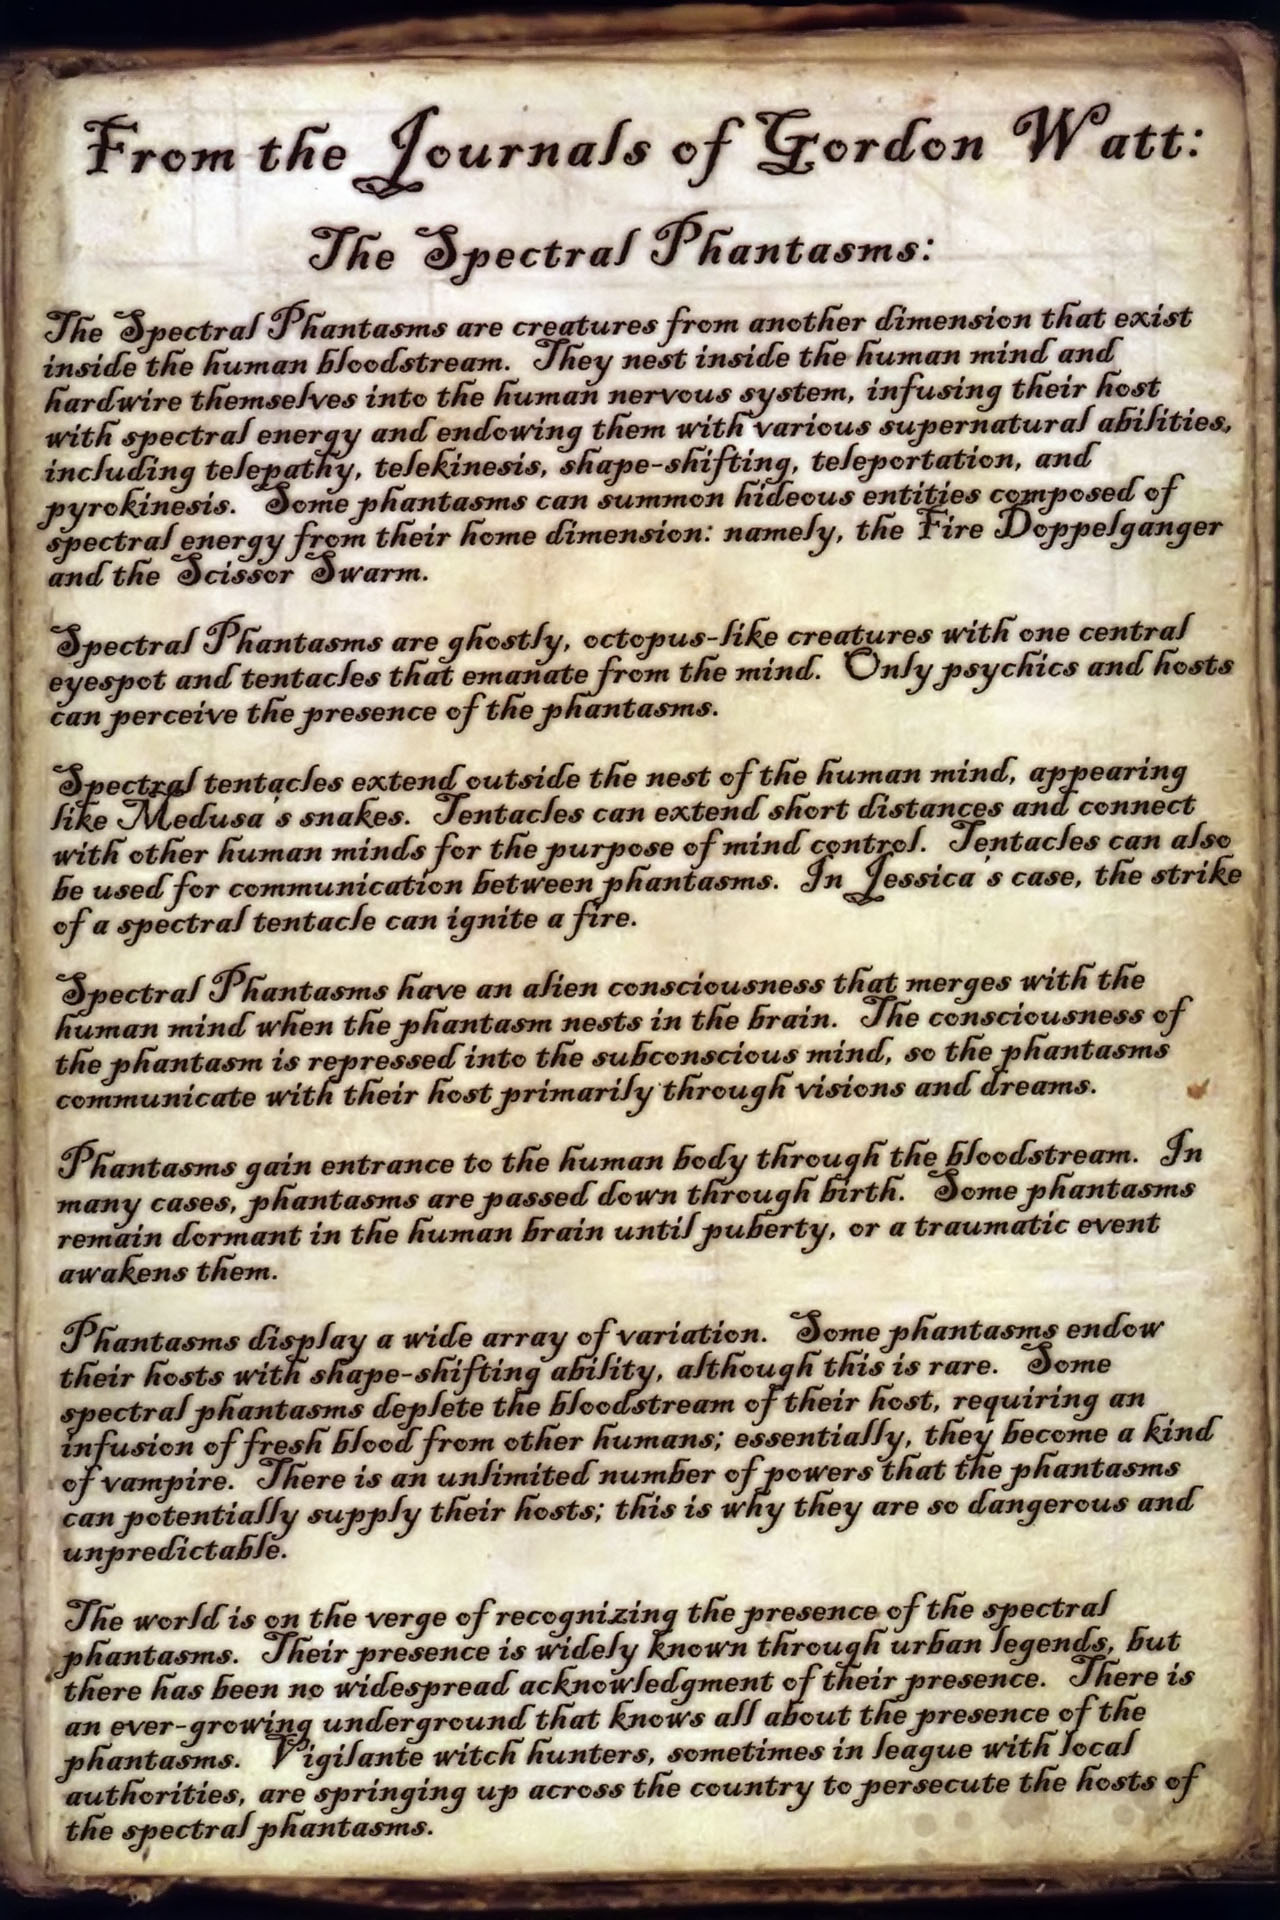 From the Journals of Gordon Watt:
The Spectral Phantasms:
The Spectral Phantasms are creatures from another dimension that exist
inside the human bloodstream. They nest inside the human mind and
hardwire themselves into the human nervous system, infusing their host
with spectral energy and endowing them with various supernatural abilities,
including telepathy, telekinesis, shape-shifting, teleportation, and
pyrokinesis. Some phantasms can summon hideous entities composed of
spectral energy from their home dimension: namely, the Fire Doppelganger
and the Scissor Swarm.
Spectral Phantasms are ghostly, octopus-like creatures with one central
eyespot and tentacles that emanate from the mind. Only psychics and hosts
can perceive the presence of the phantasms.
Spectral tentacles extend outside the nest of the human mind, appearing
like Medusa's snakes. Tentacles can extend short distances and connect
with other human minds for the purpose of mind control. Tentacles can also
be used for communication between phantasms. In Jessica's case, the strike
of a spectral tentacle can ignite a fire.
Spectral Phantasms have an alien consciousness that merges with the
human mind when the phantasm nests in the brain. The consciousness of
the phantasm is repressed into the subconscious mind, so the phantasms
communicate with their host primarily through visions and dreams.
Phantasms gain entrance to the human body through the bloodstream. In
many cases, phantasms are passed down through birth. Some phantasms
remain dormant in the human brain until puberty, or a traumatic event
awakens them.
Phantasms display a wide array of variation. Some phantasms endow
their hosts with shape-shifting ability, although this is rare. Some
spectral phantasms deplete the bloodstream of their host, requiring an
infusion of fresh blood from other humans; essentially, they become a kind
of vampire. There is an unlimited number of powers that the phantasms
can potentially supply their hosts; this is why they are so dangerous and
unpredictable.
The world is on the verge of recognizing the presence of the spectral
phantasms. Their presence is widely known through urban legends, but
there has been no widespread acknowledgment of their presence. There is
an ever-growing underground that knows all about the presence of the
phantasms. Vigilante witch hunters, sometimes in league with local
authorities, are springing up across the country to persecute the hosts of
the spectral phantasms.